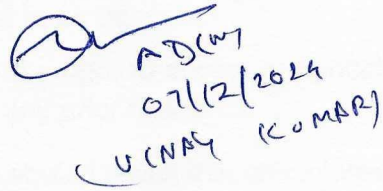 AD(W)
07/12/2024
(VINAY KUMAR)